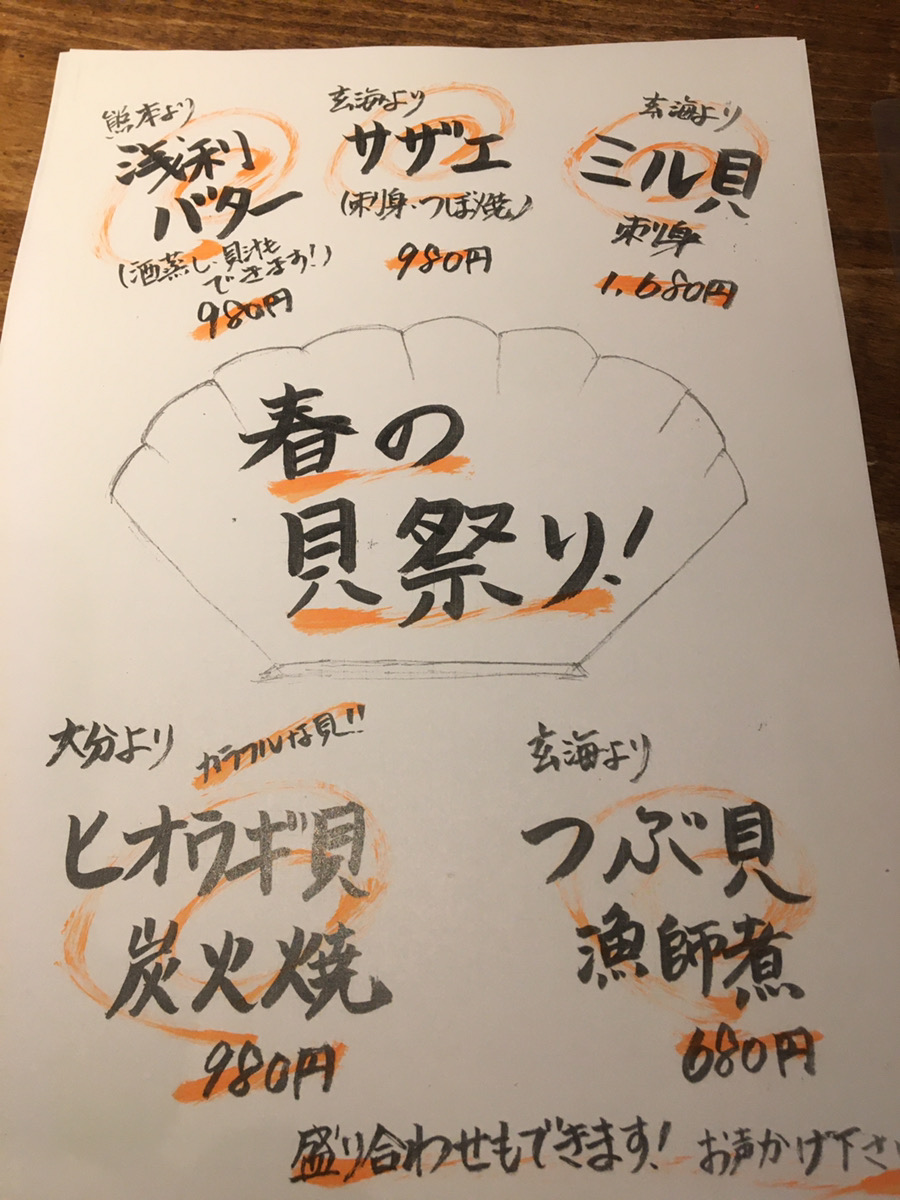 熊本より
浅利
バター
(酒蒸し、貝汁も
できます!)
980円
玄海より
サザエ
(刺身・つぼ焼)
980円
玄海より
ミル貝
刺身
1,680円
春の
貝祭り!
大分より
カラフルな貝!!
ヒオウギ貝
炭火焼
980円
玄海より
つぶ貝
漁師煮
680円
盛り合わせもできます! お声かげ下さ